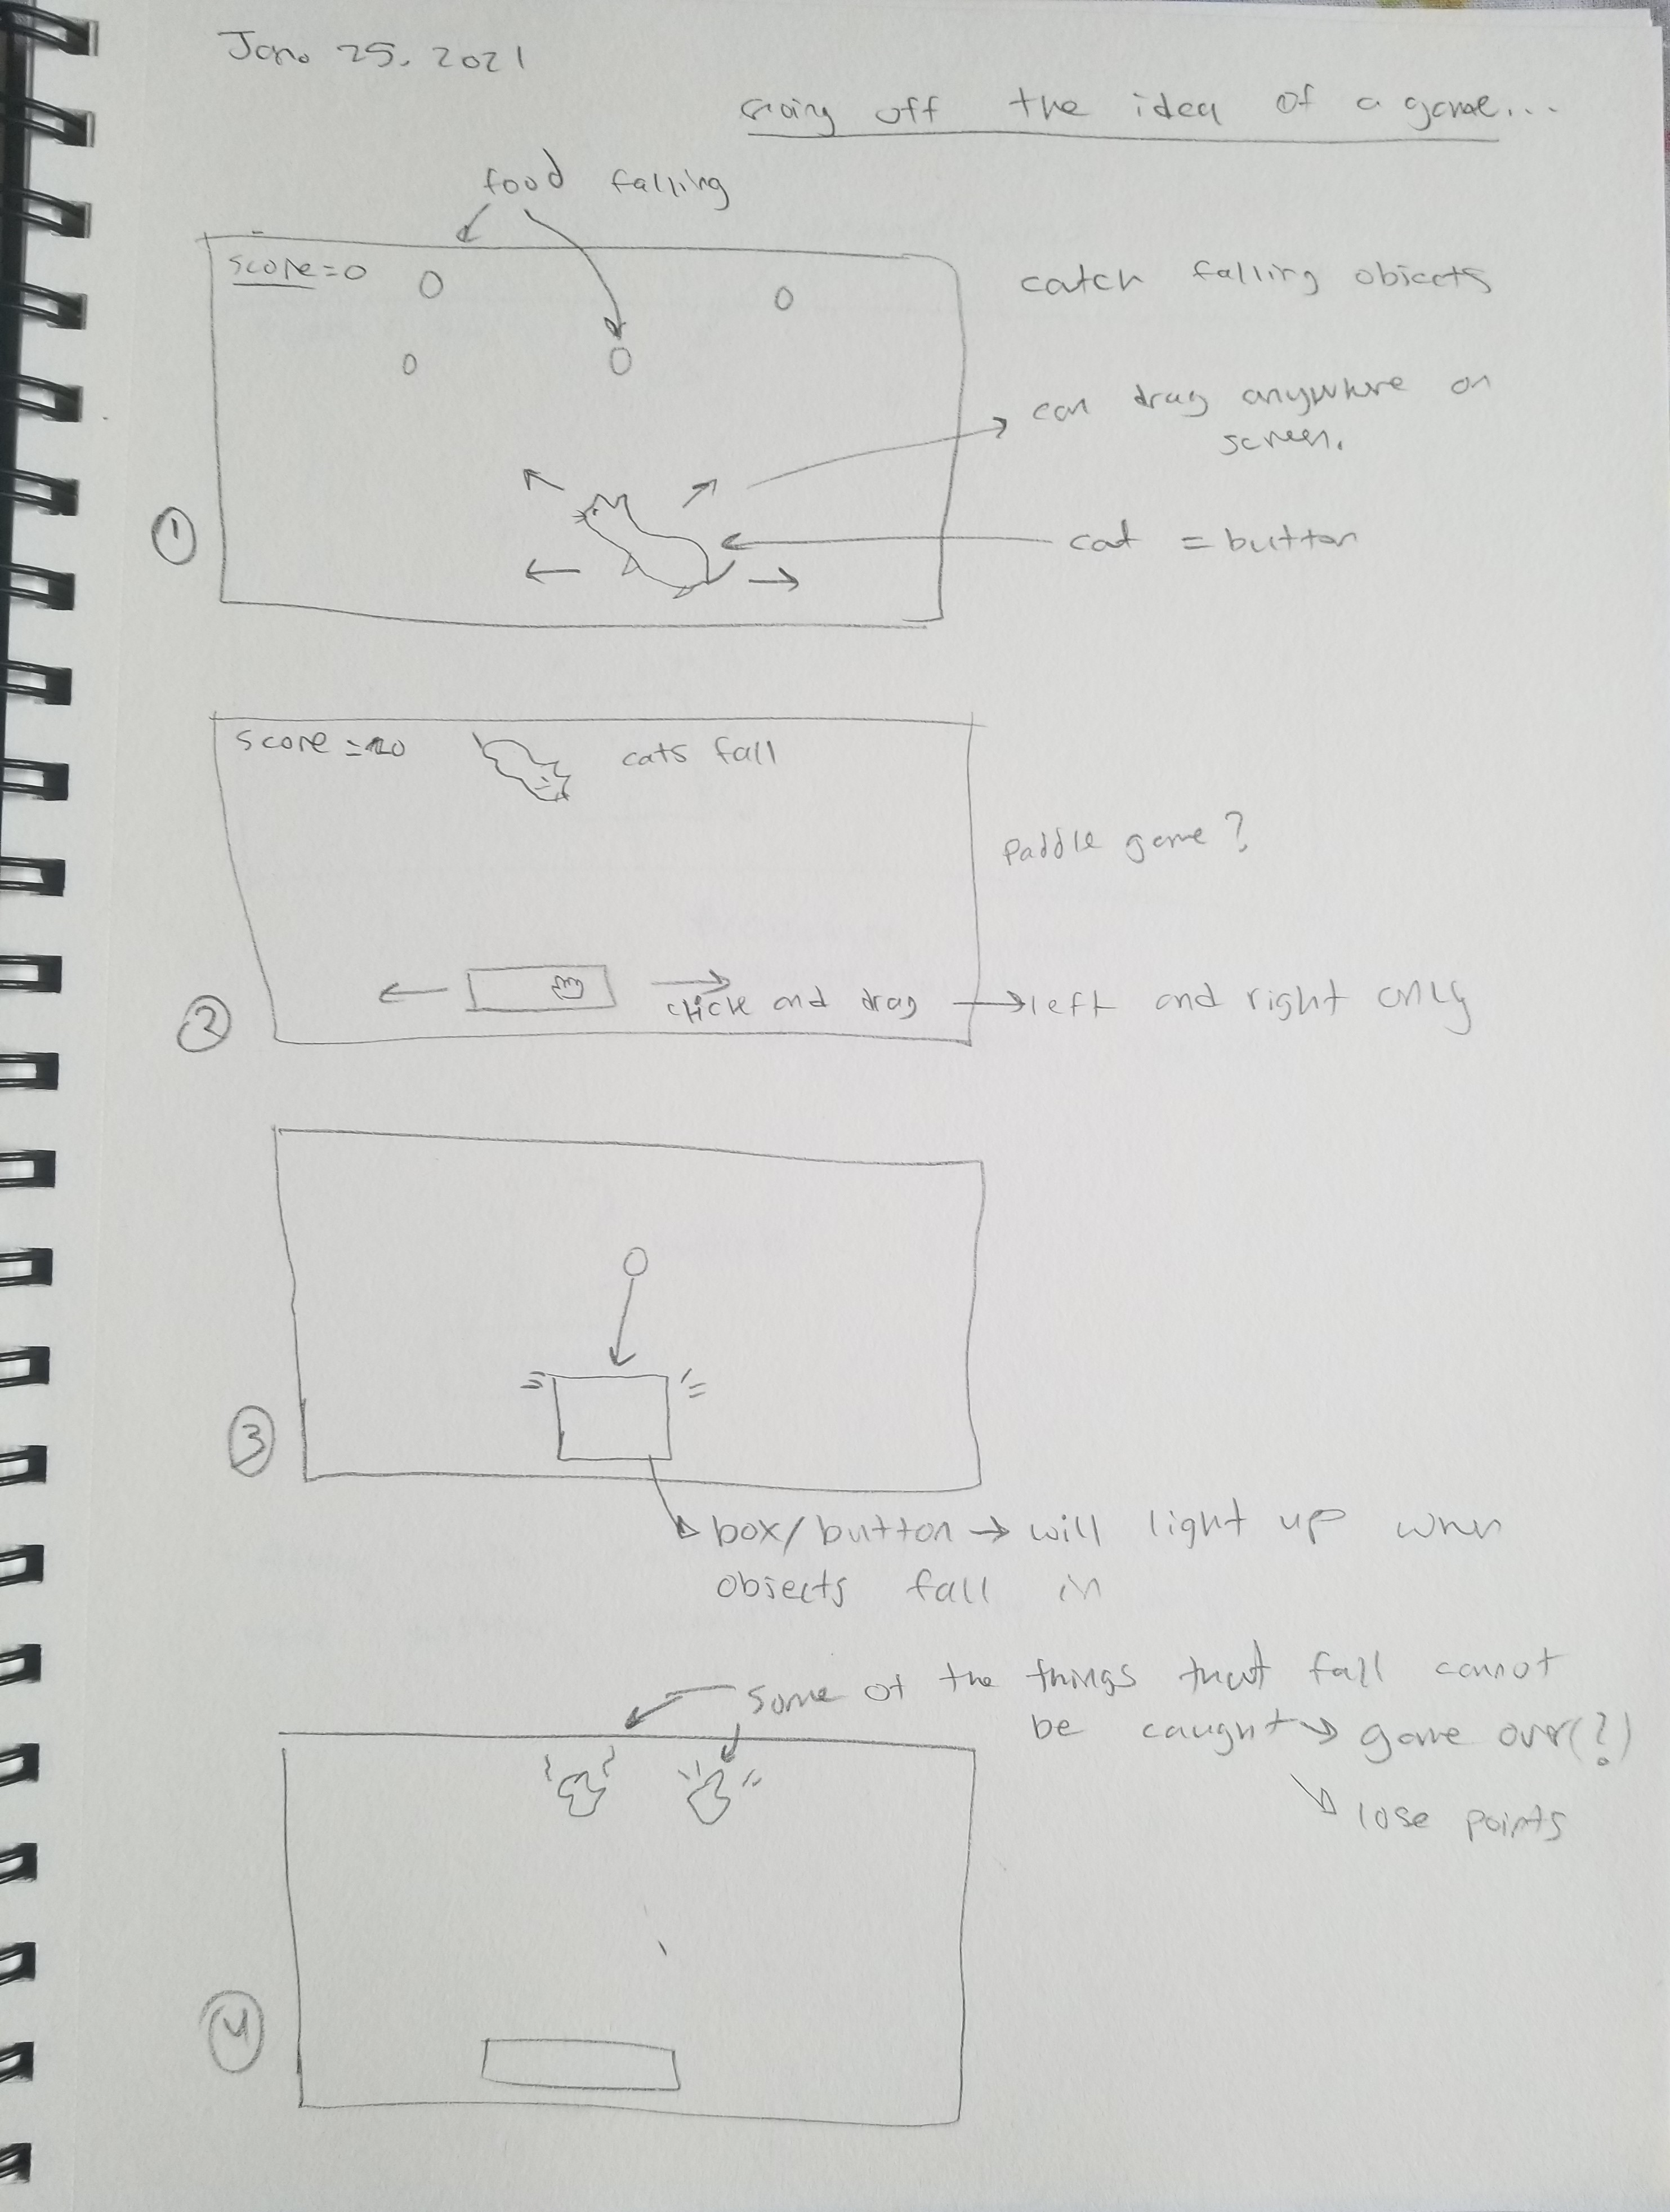 Jan. 25, 2021
Going off the idea of a game...
food falling
score=0
catch falling objects
can drag anywhere on
screen.
cat = button
1
score=
cats fall
Paddle game?
click and drag → left and right only
2
3
box/button → will light up when
objects fall in
some of the things that fall cannot
be caught → game over(?)
lose points
4